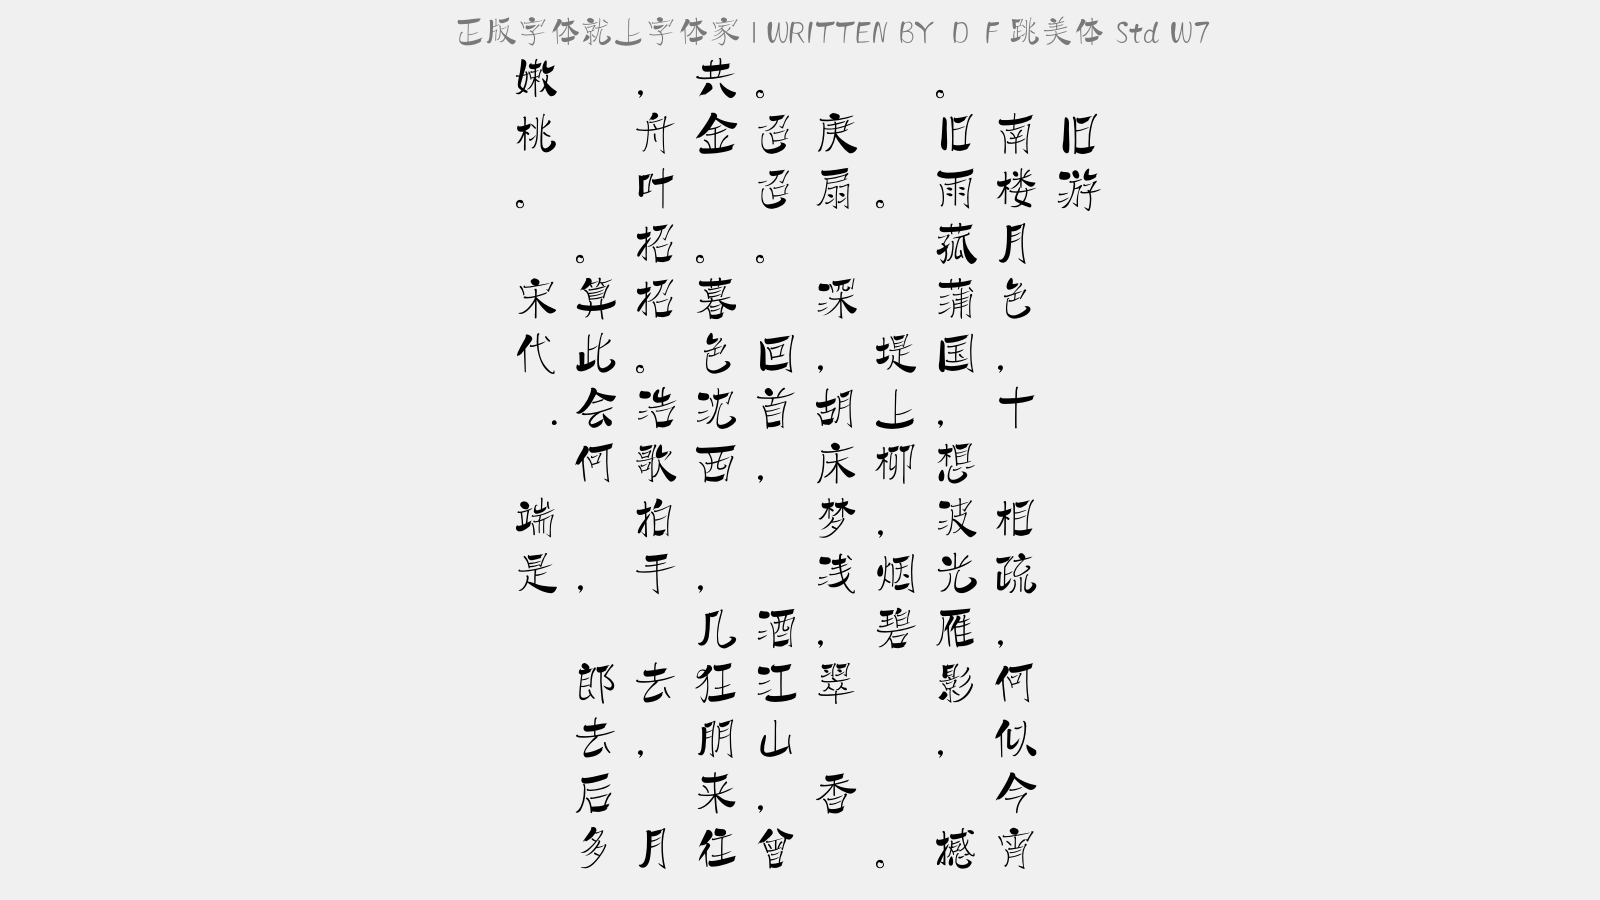 正版字体就上字体家 | WRITTEN BY D F 跳美体 Std W7
旧游
南楼月色,十 相疏,何似今宵
。旧雨菰蒲国,想波光雁影, 撼
。 堤上柳,烟碧 。
庚扇 深,胡床梦浅, 翠 香
。迢迢。 回首, 酒江山,曾
共金 。暮色沈西 ,几狂朋来往
,舟叶招招。浩歌拍手, 去, 月
。算此会何 , 郎去后多
嫩桃。 宋代. 端是